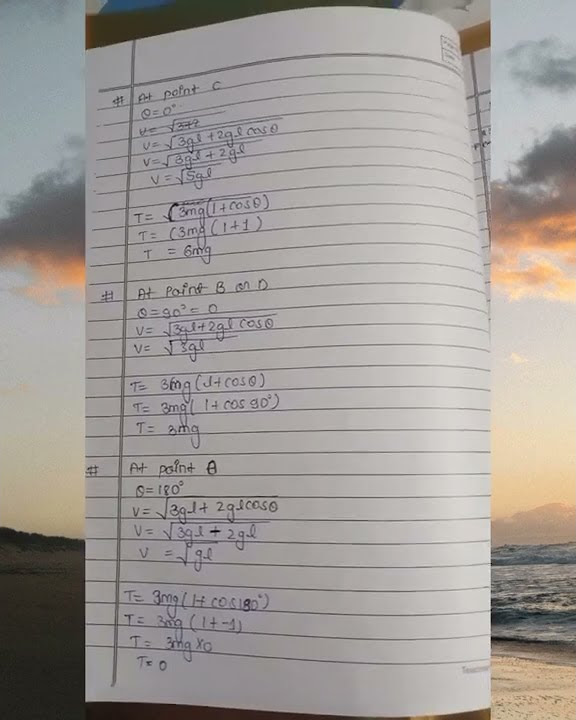 # At point C
θ=0°
v= √3+2
v= √3gl+2gl cosθ
v= √3gl+2gl
v= √5gl
T= √3mg(1+cosθ)
T= (3mg (1+1)
T = 6mg
# At point B or D
θ=90°=0
v= √3gl+2gl cosθ
v= √3gl
T= 3mg(1+cosθ)
T= 3mg( 1+cos 90°)
T= 3mg
# At point θ
θ=180°
v= √3gl+ 2glcosθ
v= √3gl - 2gl
v = √gl
T= 3mg(1+cos180°)
T= 3mg (1+-1)
T= 3mg×0
T=0